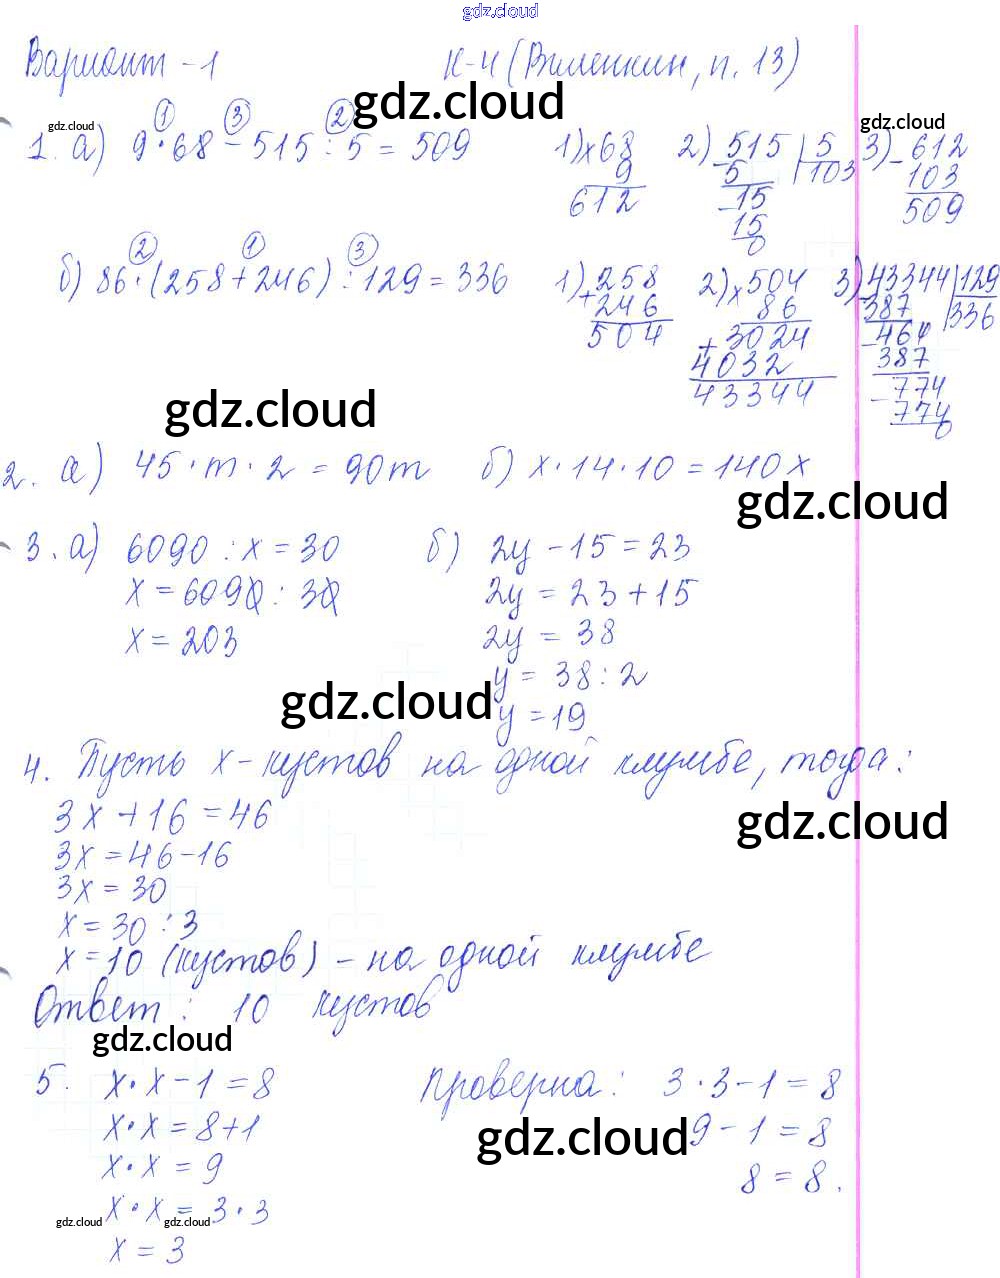 gdz.cloud
Вариант - 1 К-4 (Виленкин, п. 13)
gdz.cloud
gdz.cloud gdz.cloud
① ③ ②
1. а) 9 · 68 - 515 : 5 = 509 1) × 68 2) - 515 | 5 3) - 612
9 5 103 103
612 - 15 509
15
0
② ① ③
б) 86 · (258 + 246) : 129 = 336 1) + 258 2) × 504 3) - 43344 | 129
246 86 387 336
504 + 3024 - 464
4032 387
43344 - 774
774
0
gdz.cloud
2. а) 45 · m · 2 = 90m б) x · 14 · 10 = 140x
gdz.cloud
3. а) 6090 : x = 30 б) 2y - 15 = 23
x = 6090 : 30 2y = 23 + 15
x = 203 2y = 38
y = 38 : 2
gdz.cloud y = 19
4. Пусть x - кустов на одной клумбе, тогда:
3x + 16 = 46 gdz.cloud
3x = 46 - 16
3x = 30
x = 30 : 3
x = 10 (кустов) - на одной клумбе
Ответ: 10 кустов
gdz.cloud
5. x · x - 1 = 8 Проверка: 3 · 3 - 1 = 8
x · x = 8 + 1 gdz.cloud 9 - 1 = 8
x · x = 9 8 = 8.
x · x = 3 · 3
gdz.cloud gdz.cloud
x = 3